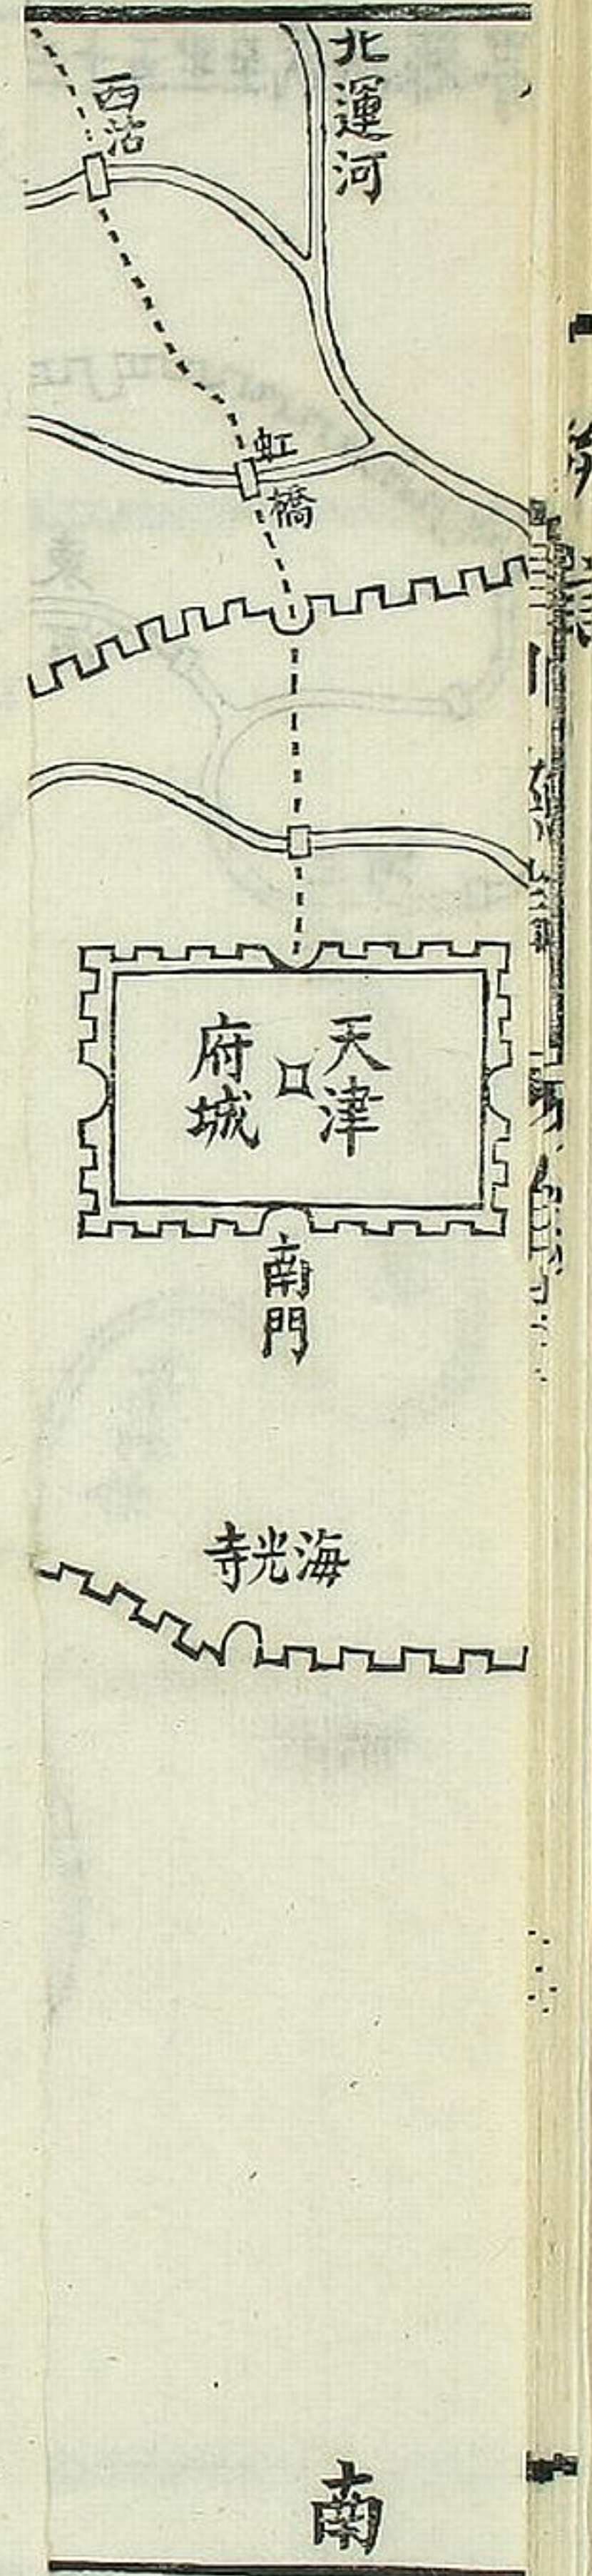 北運河
西沽
虹橋
天津
府城
南門
海光寺
南